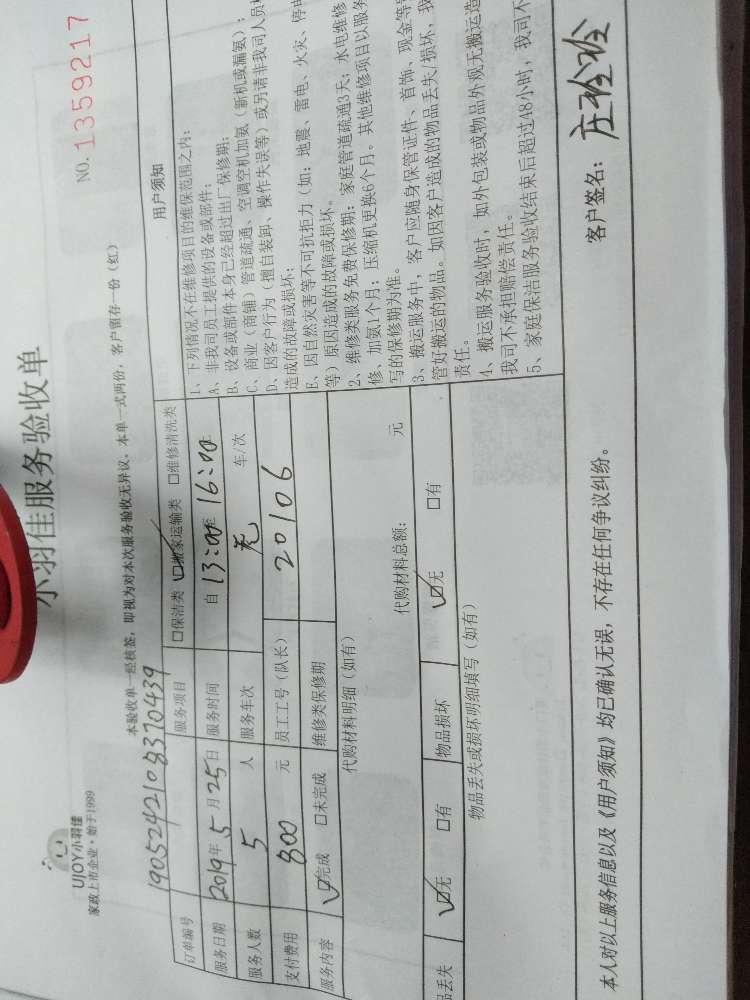 UJOY小羽佳
家政上市企业·始于1999
小羽佳服务验收单
NO. 1359217
本验收单一经核签,即视为对本次服务验收无异议。本单一式两份,客户留存一份(红)
订单编号 1905242108370439
服务项目 □保洁类 ☑搬家运输类 □维修清洗类
服务日期 2019年5月25日 服务时间 自13:00至16:00
服务人数 5 人 服务车次 无 车/次
支付费用 800 元 员工工号(队长) 20106
服务内容 ☑完成 □未完成 维修类保修期
代购材料明细(如有)
代购材料总额: 元
品丢失 ☑无 □有 物品损坏 ☑无 □有
物品丢失或损坏明细填写(如有)
用户须知
1、下列情况不在维修项目的维保范围之内:
A、非我司员工提供的设备或部件;
B、设备或部件本身已经超过出厂保修期;
C、商业(商铺)管道疏通、空调空机加氨(新机或漏氨);
D、因客户行为(擅自装卸、操作失误等)或另请非我司人员
造成的故障或损坏;
E、因自然灾害等不可抗拒力(如:地震、雷电、火灾、停电
等)原因造成的故障或损坏。
2、维修类服务免费保修期:家庭管道疏通3天;水电维修
修、加氨1个月;压缩机更换6个月。其他维修项目以服务
写的保修期为准。
3、搬运服务中,客户应随身保管证件、首饰、现金等
管好搬运的物品。如因客户造成的物品丢失/损坏,我
责任。
4、搬运服务验收时,如外包装或物品外观无搬运造
我司不承担赔偿责任。
5、家庭保洁服务验收结束后超过48小时,我司不
本人对以上服务信息以及《用户须知》均已确认无误,不存在任何争议纠纷。
客户签名: 庄玲玲